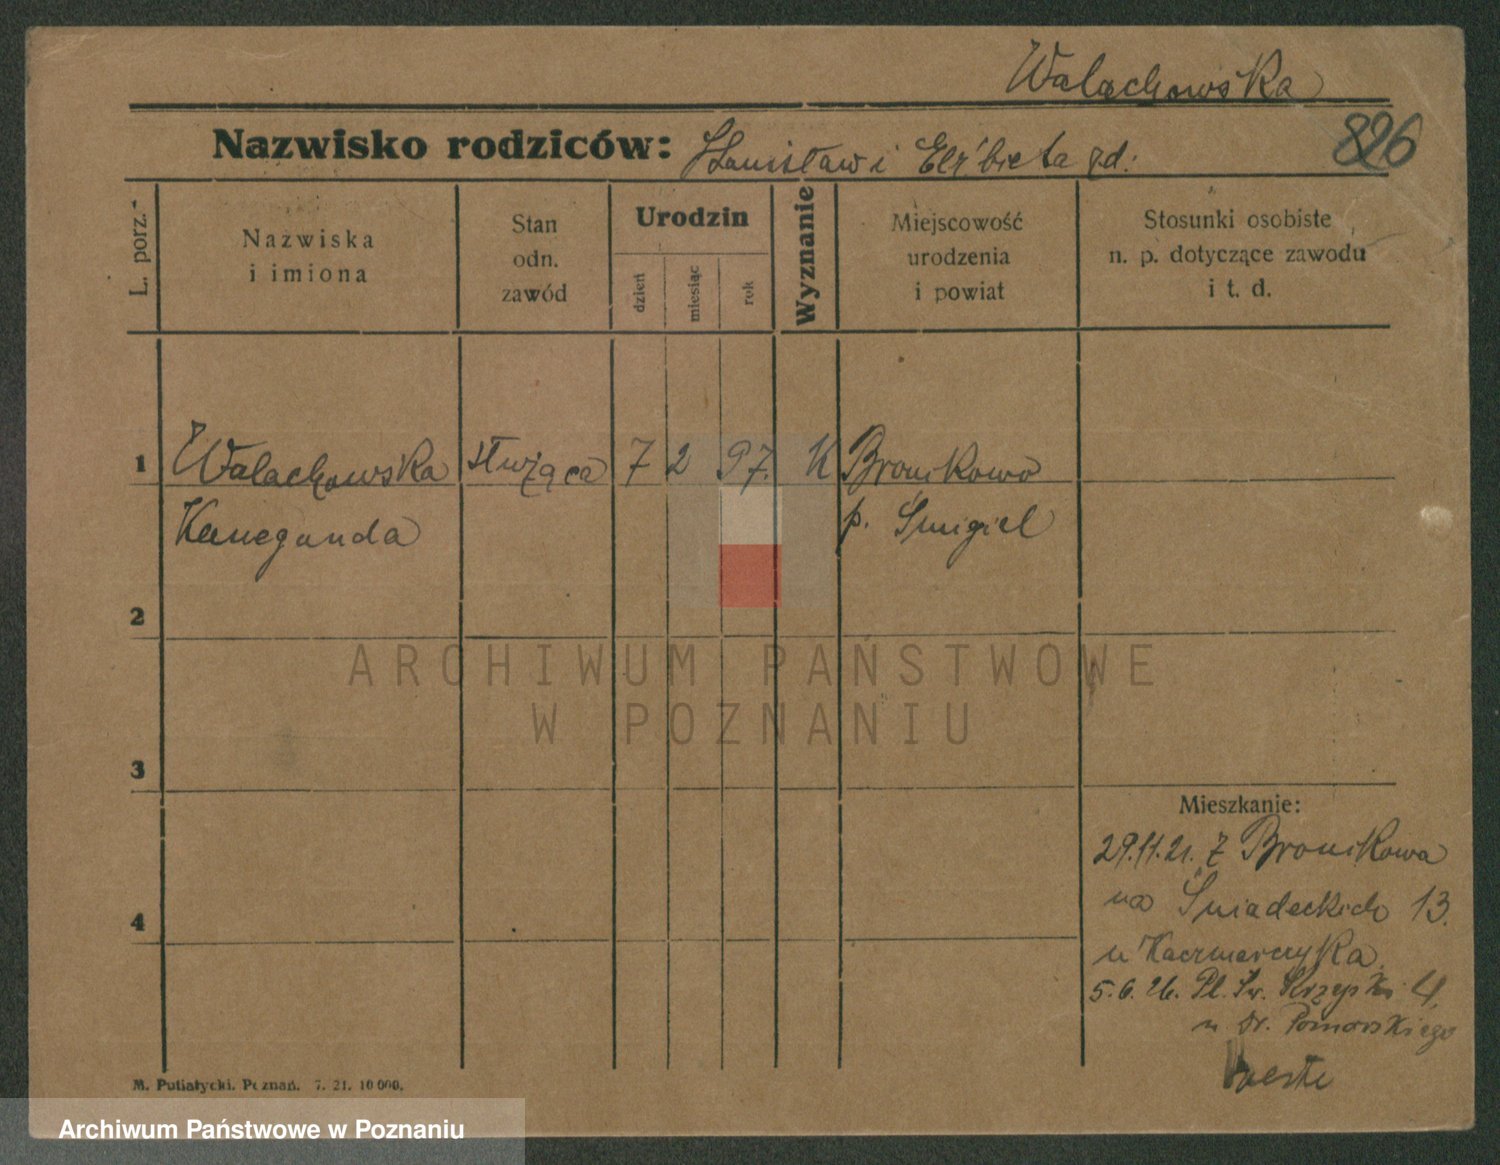 Walachowska
826
Nazwisko rodziców: Stanisław i Elżbieta zd.
L. porz.
Nazwiska
i imiona
Stan
odn.
zawód
Urodzin
dzień
miesiąc
rok
Wyznanie
Miejscowość
urodzenia
i powiat
Stosunki osobiste
n. p. dotyczące zawodu
i t. d.
1 Walachowska służąca 7 2 97. K Bronikowo
Kunegunda p. Śmigiel
2
ARCHIWUM PAŃSTWOWE
W POZNANIU
3
Mieszkanie:
29.11.21. z Bronikowa
na Śniadeckich 13.
4
u Kaczmarczyka
5.6.26. Pl. Św. Krzyski 4.
u Dr. Pomorskiego
M. Putiatycki. Poznań. 7. 21. 10 000.
Archiwum Państwowe w Poznaniu